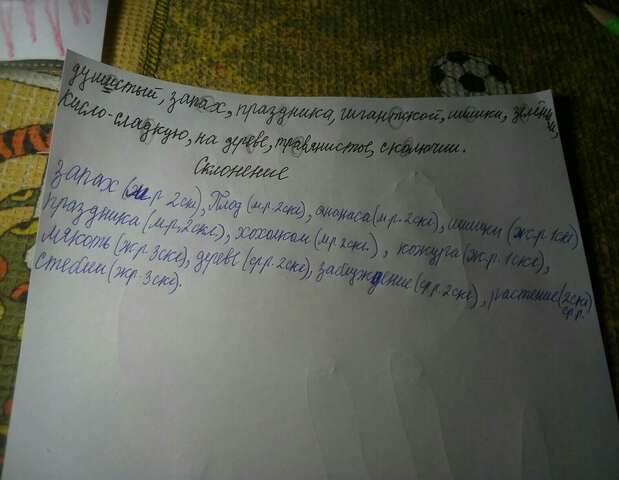 душистый, запах, праздника, гигантской, шишки, зелёный,
кисло-сладкую, на дереве, травянистое, с колючими.
Склонение
запах (м.р 2скл), Плод (м.р. 2скл), ананаса (м.р. 2скл), шишки (ж.р. 1скл)
праздника (м.р, 2скл.), хохолком (м.р 2скл.), кожура (ж.р. 1скл),
мякоть (ж.р 3скл), дереве (ср.р. 2скл), заблуждение (ср.р. 2скл), растение (2скл)
ср.р.
стебли (ж.р. 3скл).